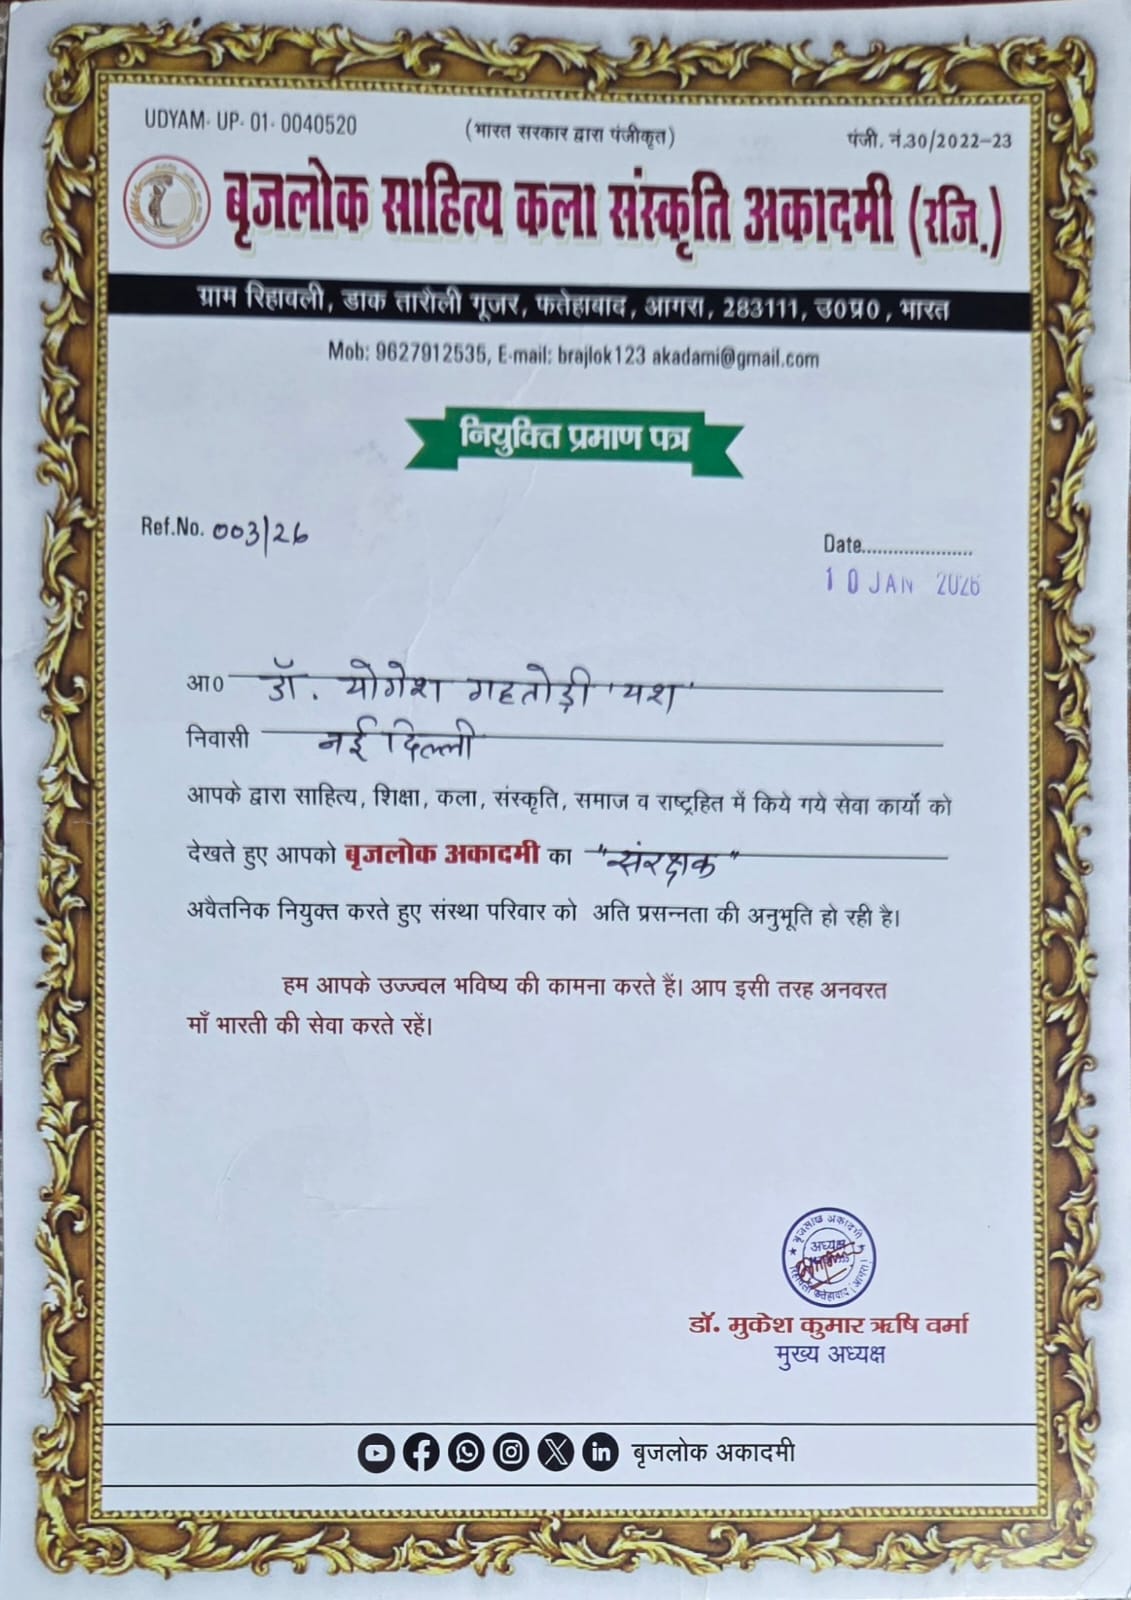 UDYAM- UP- 01- 0040520
(भारत सरकार द्वारा पंजीकृत)
पंजी. नं.30/2022-23
बृजलोक साहित्य कला संस्कृति अकादमी (रजि.)
ग्राम रिहावली, डाक तारौली गूजर, फतेहाबाद, आगरा, 283111, उ0प्र0, भारत
Mob: 9627912535, E-mail: brajlok123 akadami@gmail.com
नियुक्ति प्रमाण पत्र
Ref.No. 003/26
Date......................
10 JAN 2026
आ0 डॉ. योगेश गहतोड़ी 'यश'
निवासी नई दिल्ली
आपके द्वारा साहित्य, शिक्षा, कला, संस्कृति, समाज व राष्ट्रहित में किये गये सेवा कार्यों को
देखते हुए आपको बृजलोक अकादमी का "संरक्षक"
अवैतनिक नियुक्त करते हुए संस्था परिवार को अति प्रसन्नता की अनुभूति हो रही है।
हम आपके उज्ज्वल भविष्य की कामना करते हैं। आप इसी तरह अनवरत
माँ भारती की सेवा करते रहें।
बृजलोक अकादमी
अध्यक्ष
रिहावली फतेहाबाद (आगरा)
डॉ. मुकेश कुमार ऋषि वर्मा
मुख्य अध्यक्ष
बृजलोक अकादमी